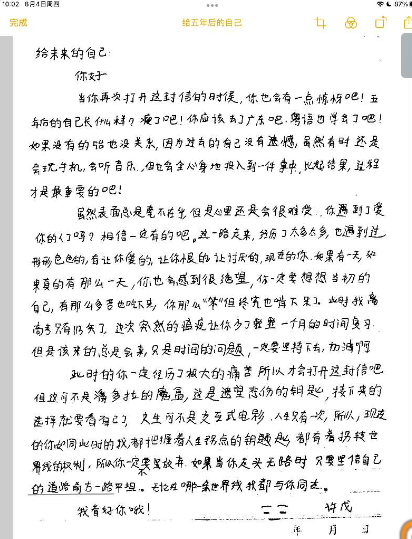 10:02 8月4日周四
87%
完成
给五年后的自己
给未来的自己:
你好
当你再次打开这封信的时候,你也会有一点惊讶吧!五
年后的自己长什么样?瘦了吧!你应该去了广东吧.粤语也学会了吧!
如果没有的话也没关系,因为过去的自己没有遗憾,虽然有时还是
会玩手机,会听音乐,但也会全心身地投入到一件事中,比起结果,过程
才是最重要的吧!
虽然表面总是毫不在乎但是心里还是会很难受.你遇到了爱
你的人了吗?相信一定有的吧.这一路走来,经历了太多太多,也遇到过
形形色色的,有让你爱的,让你恨的让讨厌的,现在的你.如果有一天,如
果真的有那么一天,你也会感到很绝望,你一定要想想当初的
自己,有那么多苦也吃下来,你那么"笨"但终究也啃下来了.此时我离
高考只有仍矢了,这次突然的瘟疫让你少了整整一个月的时间复习.
但是该来的总是会来,只是时间的问题,一定要坚持下去,加油啊
此时的你一定经历了极大的痛苦所以才会打开这封信吧
但这可不是潘多拉的魔盒,这是遗忘悲伤的钥匙,接下来的
选择就要看自己了,人生可不是交互式电影,人生只有一次,所以,现在
的你如同此时的我都把握着人生终点的钥匙,都有着拐转世
界线的权利,所以你一定要坚放弃.如果当你走头无路时只要坚信自己
的道路前方一路平坦.无论在哪一条世界线我都与你同在.
祝看好你哦!
许茂
年 月 日